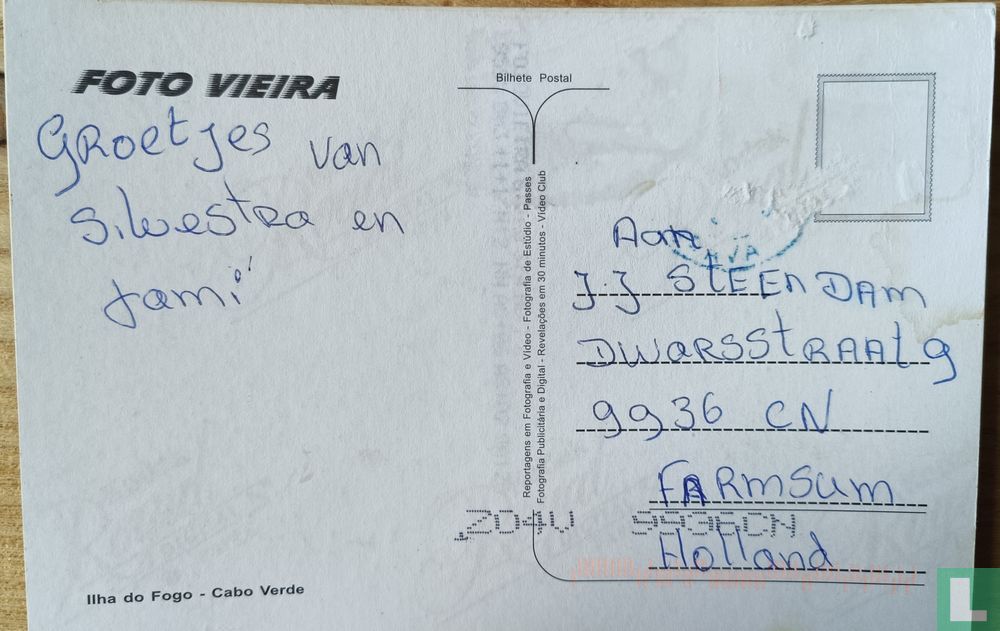 FOTO VIEIRA
Groetjes van
Silvestra en
Jami
Ilha do Fogo - Cabo Verde
Bilhete Postal
Reportagens em Fotografia e Vídeo - Fotografia de Estúdio - Passes
Fotografia Publicitária e Digital - Revelações em 30 minutos - Vídeo Club
Aan
J.J STEENDAM
DWARSSTRAAT 9
9936 CN
FARMSUM
9936CN
Holland
L